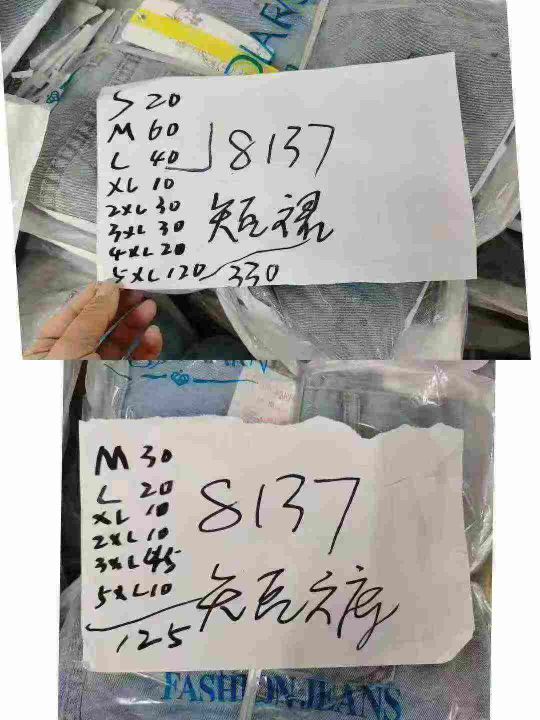 S 20
M 60
L 40
8137
XL 10
2XL 30
短裙
3XL 30
4XL 20
5XL 120
330
M 30
L 20
XL 10
8137
2XL 10
3XL 45
5XL 10
短裤
125
FASHION JEANS